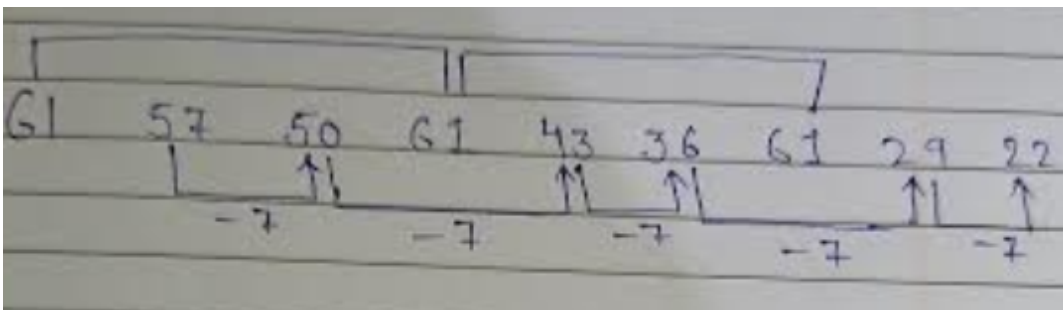 61 57 50 61 43 36 61 29 22
-7 -7 -7 -7 -7